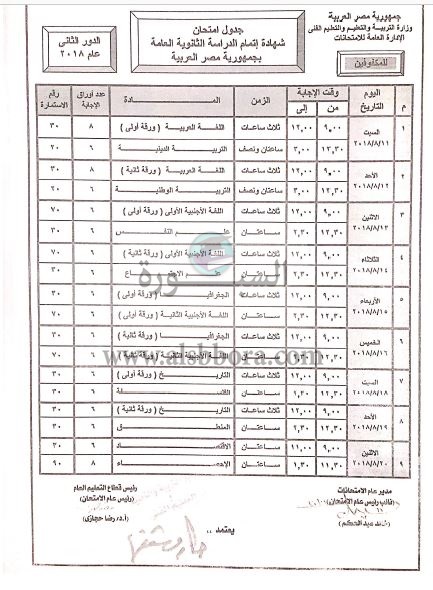 جمهورية مصر العربية
وزارة التربية والتعليم والتعليم الفنى
الإدارة العامة للامتحانات
للمكفوفين
جدول امتحان
شهادة إتمام الدراسة الثانوية العامة
بجمهورية مصر العربية
الدور الثانى
عام ٢٠١٨
م اليوم التاريخ وقت الإجابة من إلى الزمن المــــادة عدد أوراق الإجابة رقم الاستمارة
١ السبت ٢٠١٨/٨/١١ ٩,٠٠ ١٢,٠٠ ثلاث ساعات اللغة العربية ( ورقة أولى ) ٨ ٣٠
١٢,٣٠ ٣,٠٠ ساعتان ونصف التربية الدينية ٦ ٢٠
٢ الأحد ٢٠١٨/٨/١٢ ٩,٠٠ ١٢,٠٠ ثلاث ساعات اللغة العربية ( ورقة ثانية ) ٨ ٣٠
١٢,٣٠ ٣,٠٠ ساعتان ونصف التربية الوطنية ٦ ٢٠
٣ الاثنين ٢٠١٨/٨/١٣ ٩,٠٠ ١٢,٠٠ ثلاث ساعات اللغة الأجنبية الأولى ( ورقة أولى ) ٦ ٧٠
١٢,٣٠ ٢,٣٠ ساعتان علم النفس ٦ ٣٠
٤ الثلاثاء ٢٠١٨/٨/١٤ ٩,٠٠ ١٢,٠٠ ثلاث ساعات اللغة الأجنبية الأولى ( ورقة ثانية ) ٦ ٧٠
١٢,٣٠ ٢,٣٠ ساعتان علم الاجتماع ٦ ٣٠
٥ الأربعاء ٢٠١٨/٨/١٥ ٩,٠٠ ١٢,٠٠ ثلاث ساعات الجغرافيا ( ورقة أولى ) ٦ ٣٠
ساعتان اللغة الأجنبية الثانية ( ورقة أولى ) ٦ ٧٠
٦ الخميس ٢٠١٨/٨/١٦ ٩,٠٠ ١٢,٠٠ ثلاث ساعات الجغرافيا ( ورقة ثانية ) ٦ ٣٠
ساعتان اللغة الأجنبية الثانية ( ورقة ثانية ) ٦ ٧٠
٧ السبت ٢٠١٨/٨/١٨ ٩,٠٠ ١٢,٠٠ ثلاث ساعات التاريخ ( ورقة أولى ) ٦ ٣٠
ساعتان الفلسفة ٦ ٣٠
٨ الأحد ٢٠١٨/٨/١٩ ٩,٠٠ ١٢,٠٠ ثلاث ساعات التاريخ ( ورقة ثانية ) ٦ ٣٠
١٢,٣٠ ٢,٣٠ ساعتان المنطق ٦ ٣٠
٩ الاثنين ٢٠١٨/٨/٢٠ ٩,٠٠ ١١,٠٠ ساعتان الاقتصاد ٦ ٣٠
١١,٣٠ ١,٣٠ ساعتان الإحصاء ٨ ٩٠
السبورة
www.alsbbora.com
مدير عام الامتحانات
رئيس قطاع التعليم العام
ورئيس عام الامتحان
(أ.د/ رضا حجازى)
يعتمد ،،